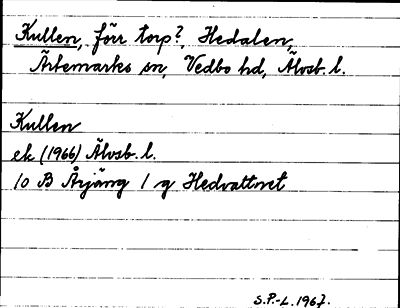 Kullen, förr torp?, Hedalen,
Ärtemarks sn, Vedbo hd, Älvsb. l.
Kullen
ek (1966) Älvsb. l.
10 B Årjäng 1 g Hedvattnet
S.P.-L. 1967.